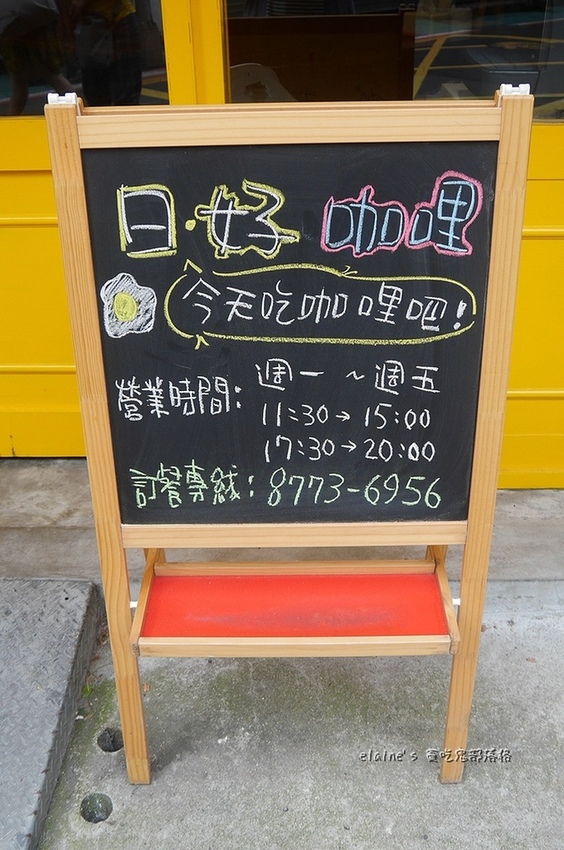 日·好 咖哩
今天吃咖哩吧!
營業時間: 週一 ~ 週五
11:30→15:00
17:30→20:00
訂餐專線: 8773-6956
elaine's 貪吃鬼部落格